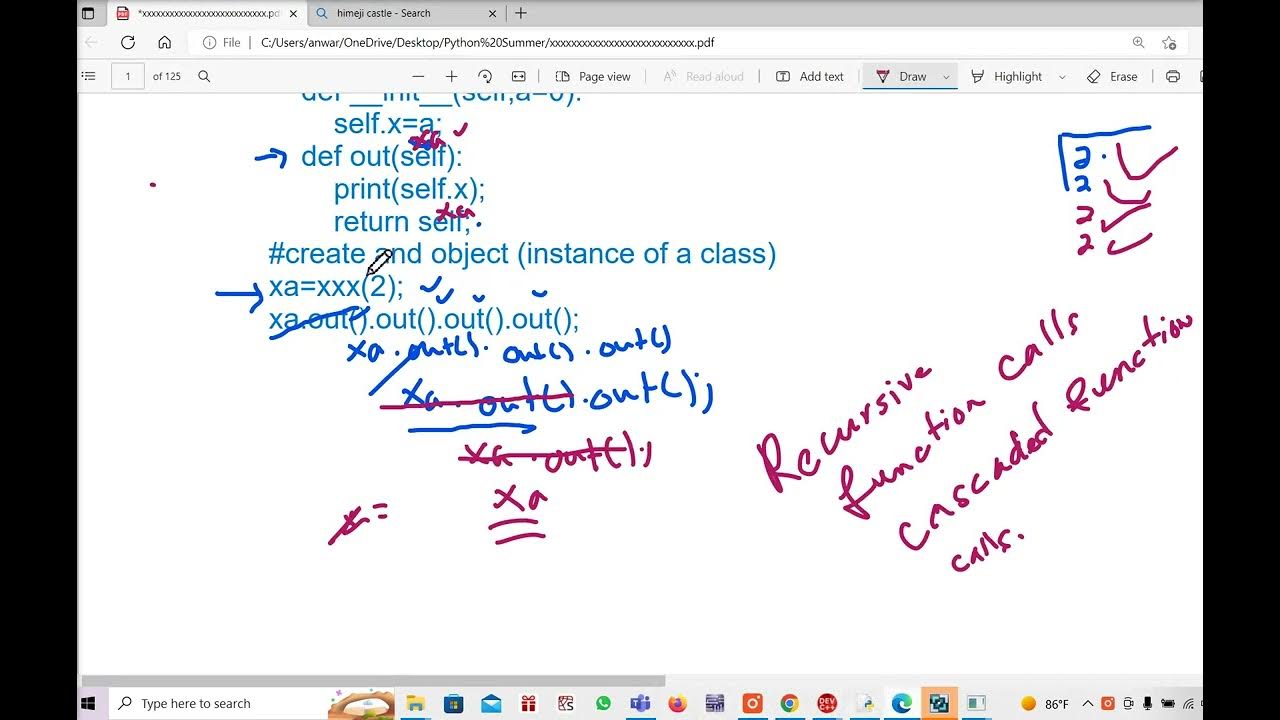 *xxxxxxxxxxxxxxxxxxxxxxxxxxx.pd
himeji castle - Search
File
C:/Users/anwar/OneDrive/Desktop/Python%20Summer/xxxxxxxxxxxxxxxxxxxxxxxxxxx.pdf
1 of 125
Page view
Read aloud
Add text
Draw
Highlight
Erase
def __init__(self,a=0):
self.x=a;
xa
def out(self):
print(self.x);
xa
return self;
2
2
2
2
#create and object (instance of a class)
xa=xxx(2);
xa.out().out().out().out();
xa.out().out().out()
xa.out().out();
xa.out();
xa
x=
Recursive
function calls
cascaded function
calls.
Type here to search
DEV
C++
86°F